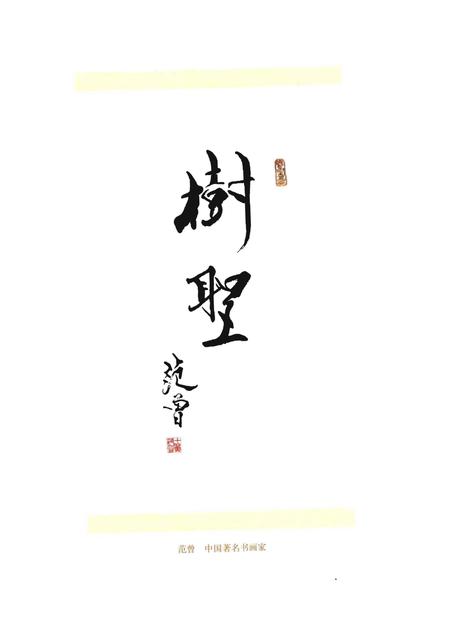 樹
聖
范曾
范曾 中国著名书画家